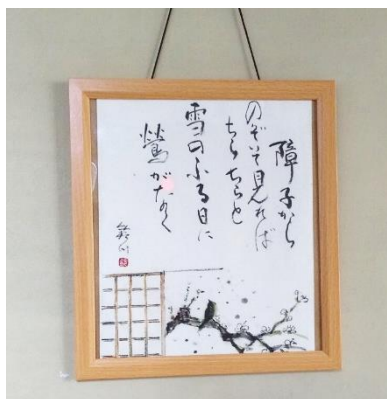 障子から
のぞいて見れば
ちらちらと
雪のふる日に
鶯がなく